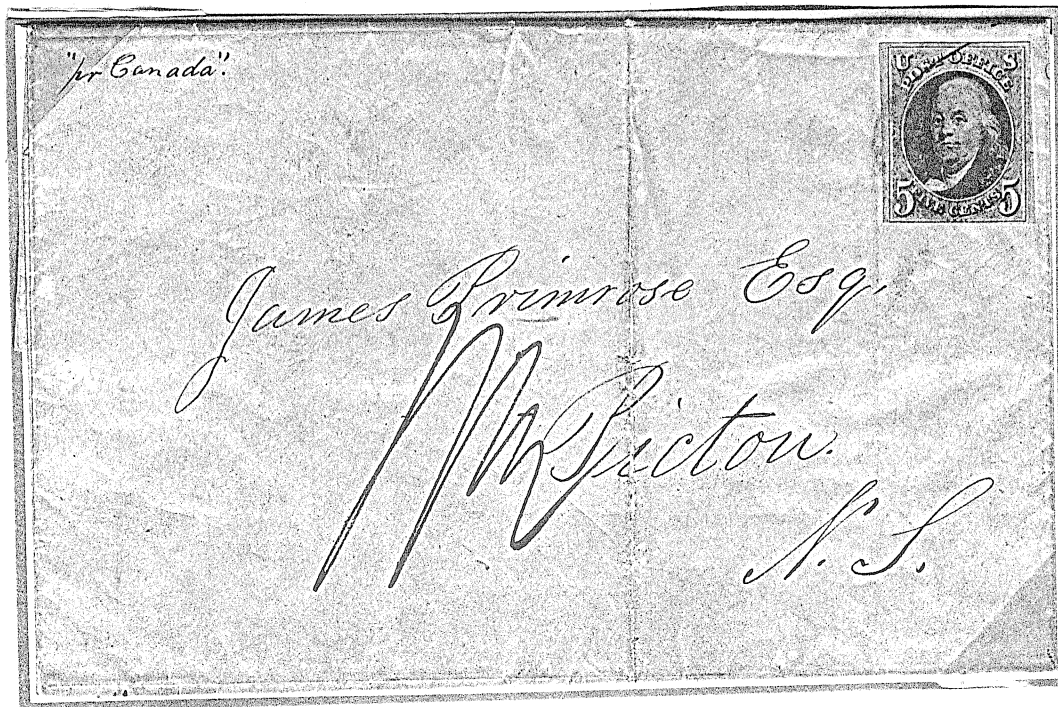 "pr Canada".
U S
POST OFFICE
5 FIVE CENTS 5
James Primrose Esq.
Pictou.
N. S.